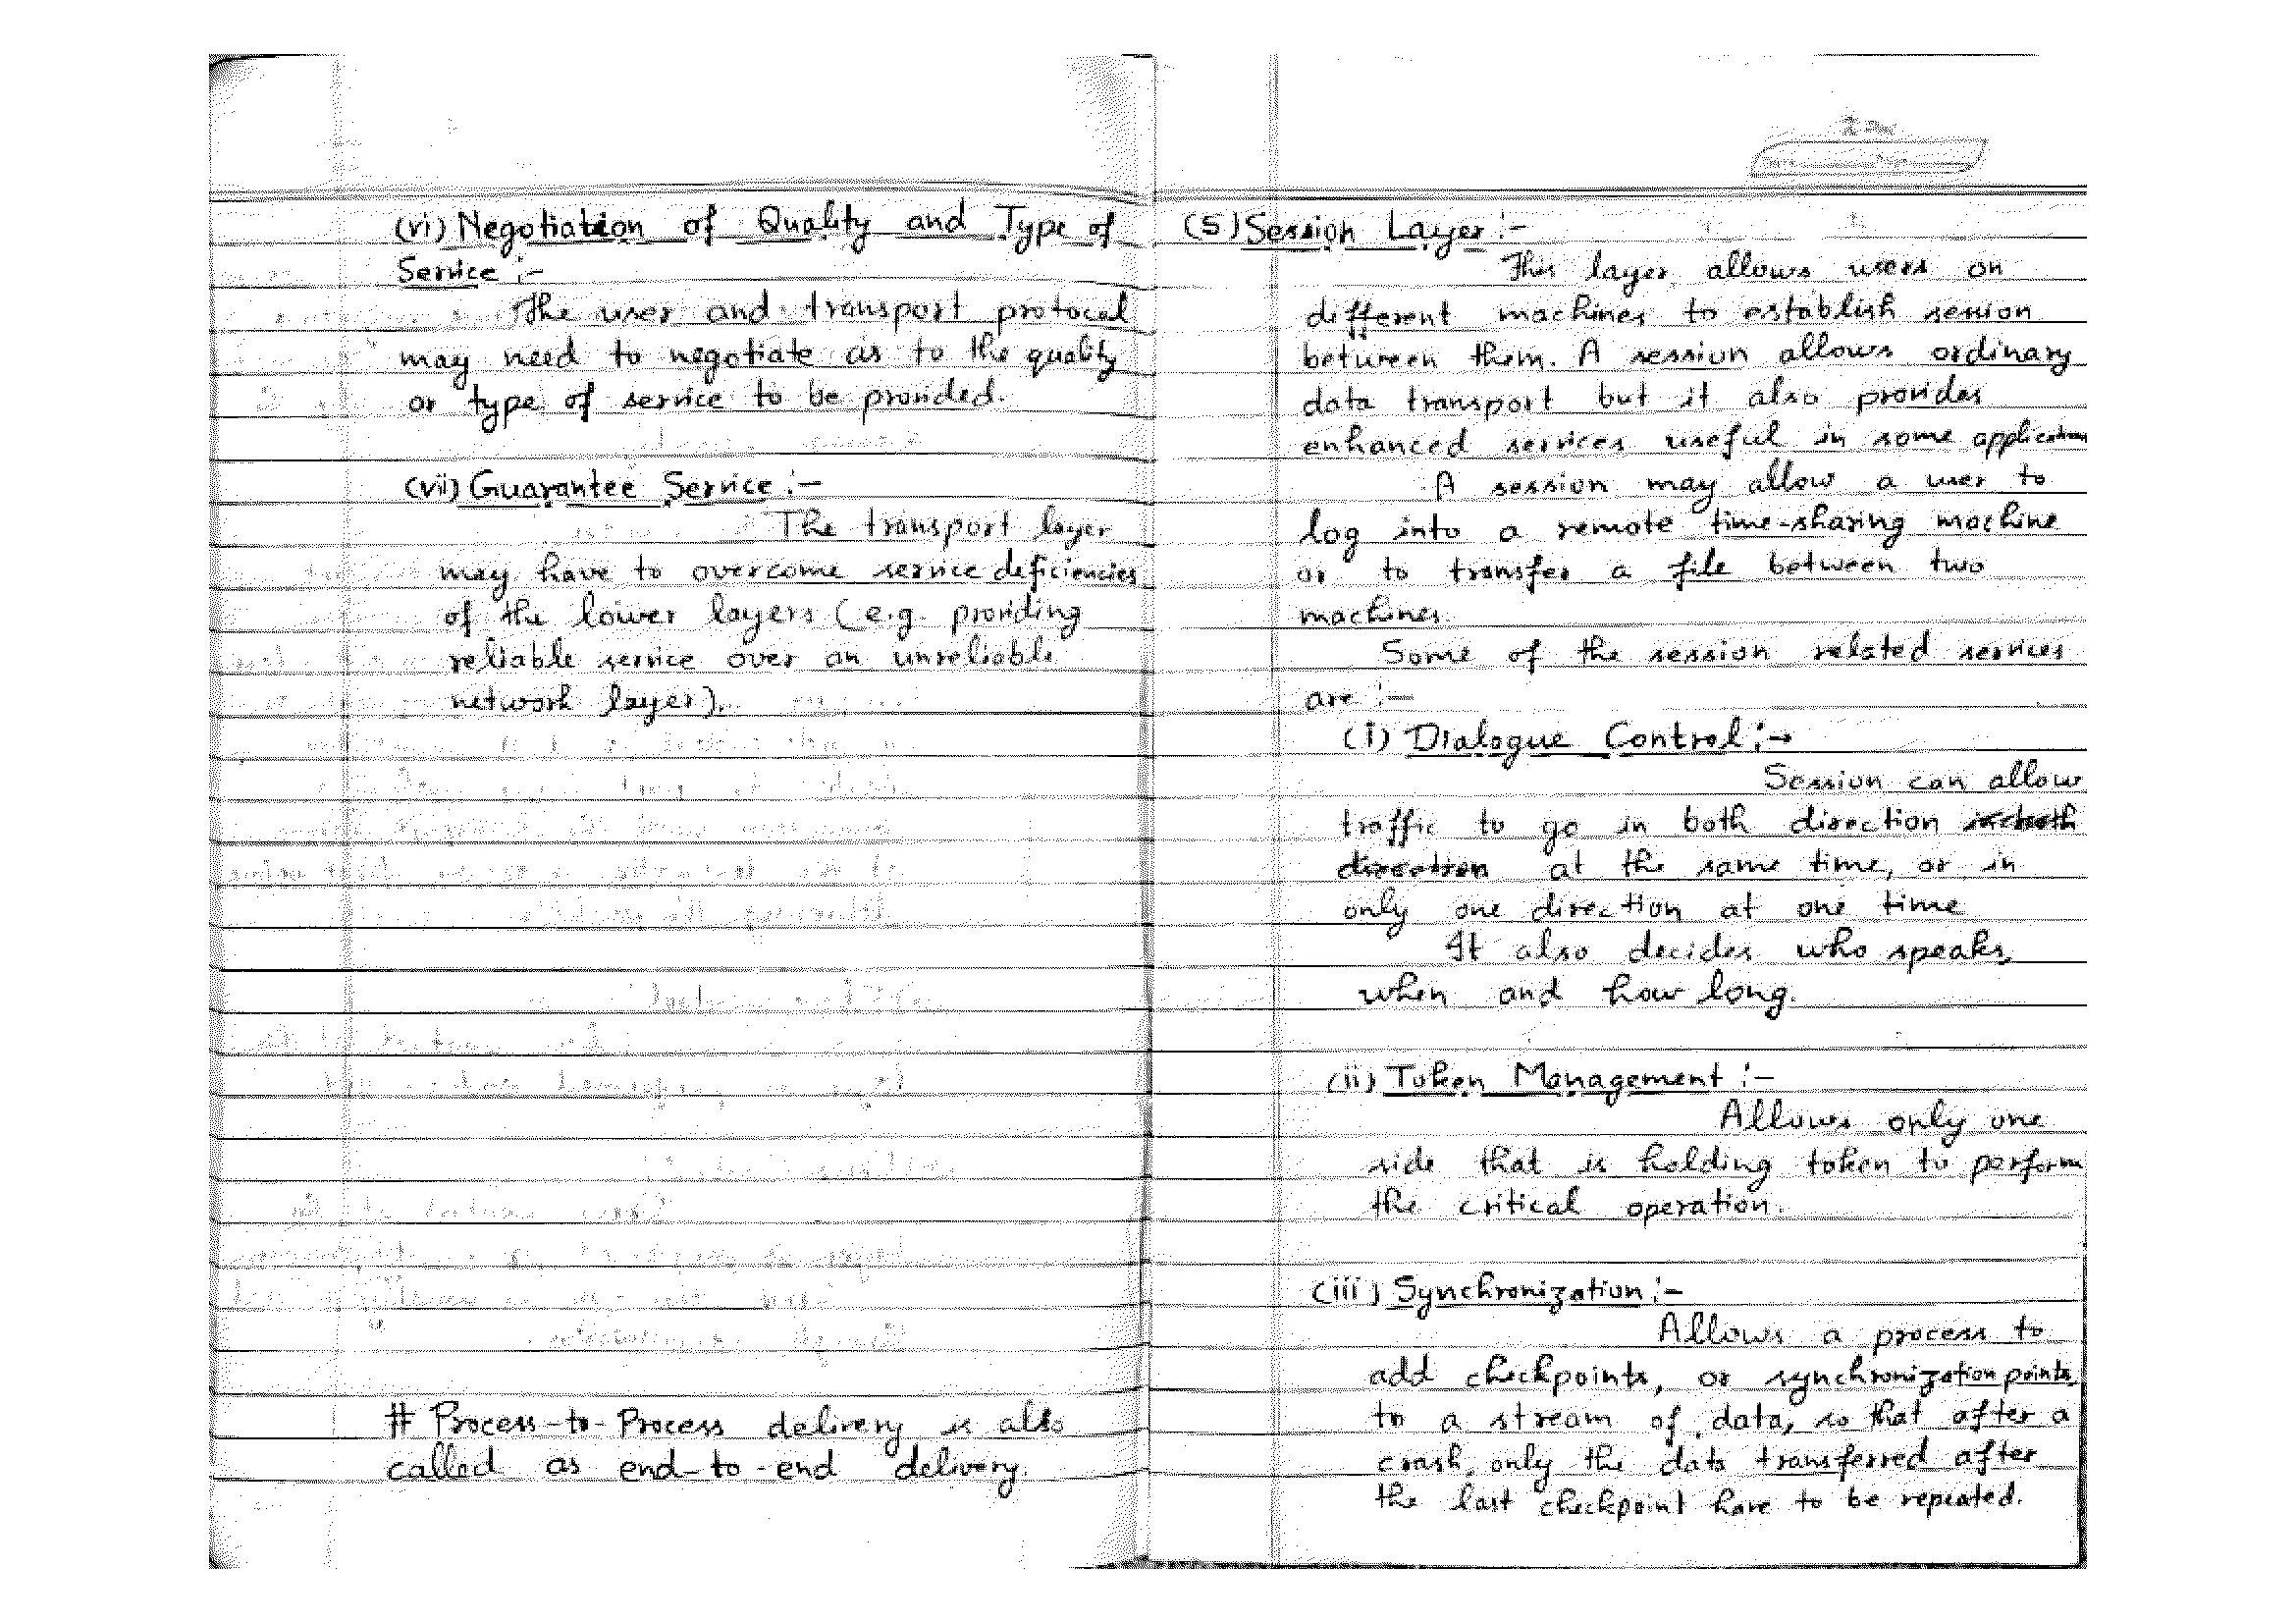 (vi) Negotiation of Quality and Type of
Service :-
The user and transport protocol
may need to negotiate as to the quality
or type of service to be provided.
(vii) Guarantee Service :-
The transport layer
may have to overcome service deficiencies
of the lower layers (e.g. providing
reliable service over an unreliable
network layer).
# Process-to-Process delivery is also
called as end-to-end delivery.
(5) Session Layer :-
This layer allows users on
different machines to establish session
between them. A session allows ordinary
data transport but it also provides
enhanced services useful in some application
A session may allow a user to
log into a remote time-sharing machine
or to transfer a file between two
machines.
Some of the session related services
are :-
(i) Dialogue Control :→
Session can allow
traffic to go in both direction in both
direction at the same time, or in
only one direction at one time
It also decides who speaks,
when and how long.
(ii) Token Management :-
Allows only one
side that is holding token to perform
the critical operation.
(iii) Synchronization :-
Allows a process to
add checkpoints, or synchronization points,
to a stream of data, so that after a
crash, only the data transferred after
the last checkpoint have to be repeated.